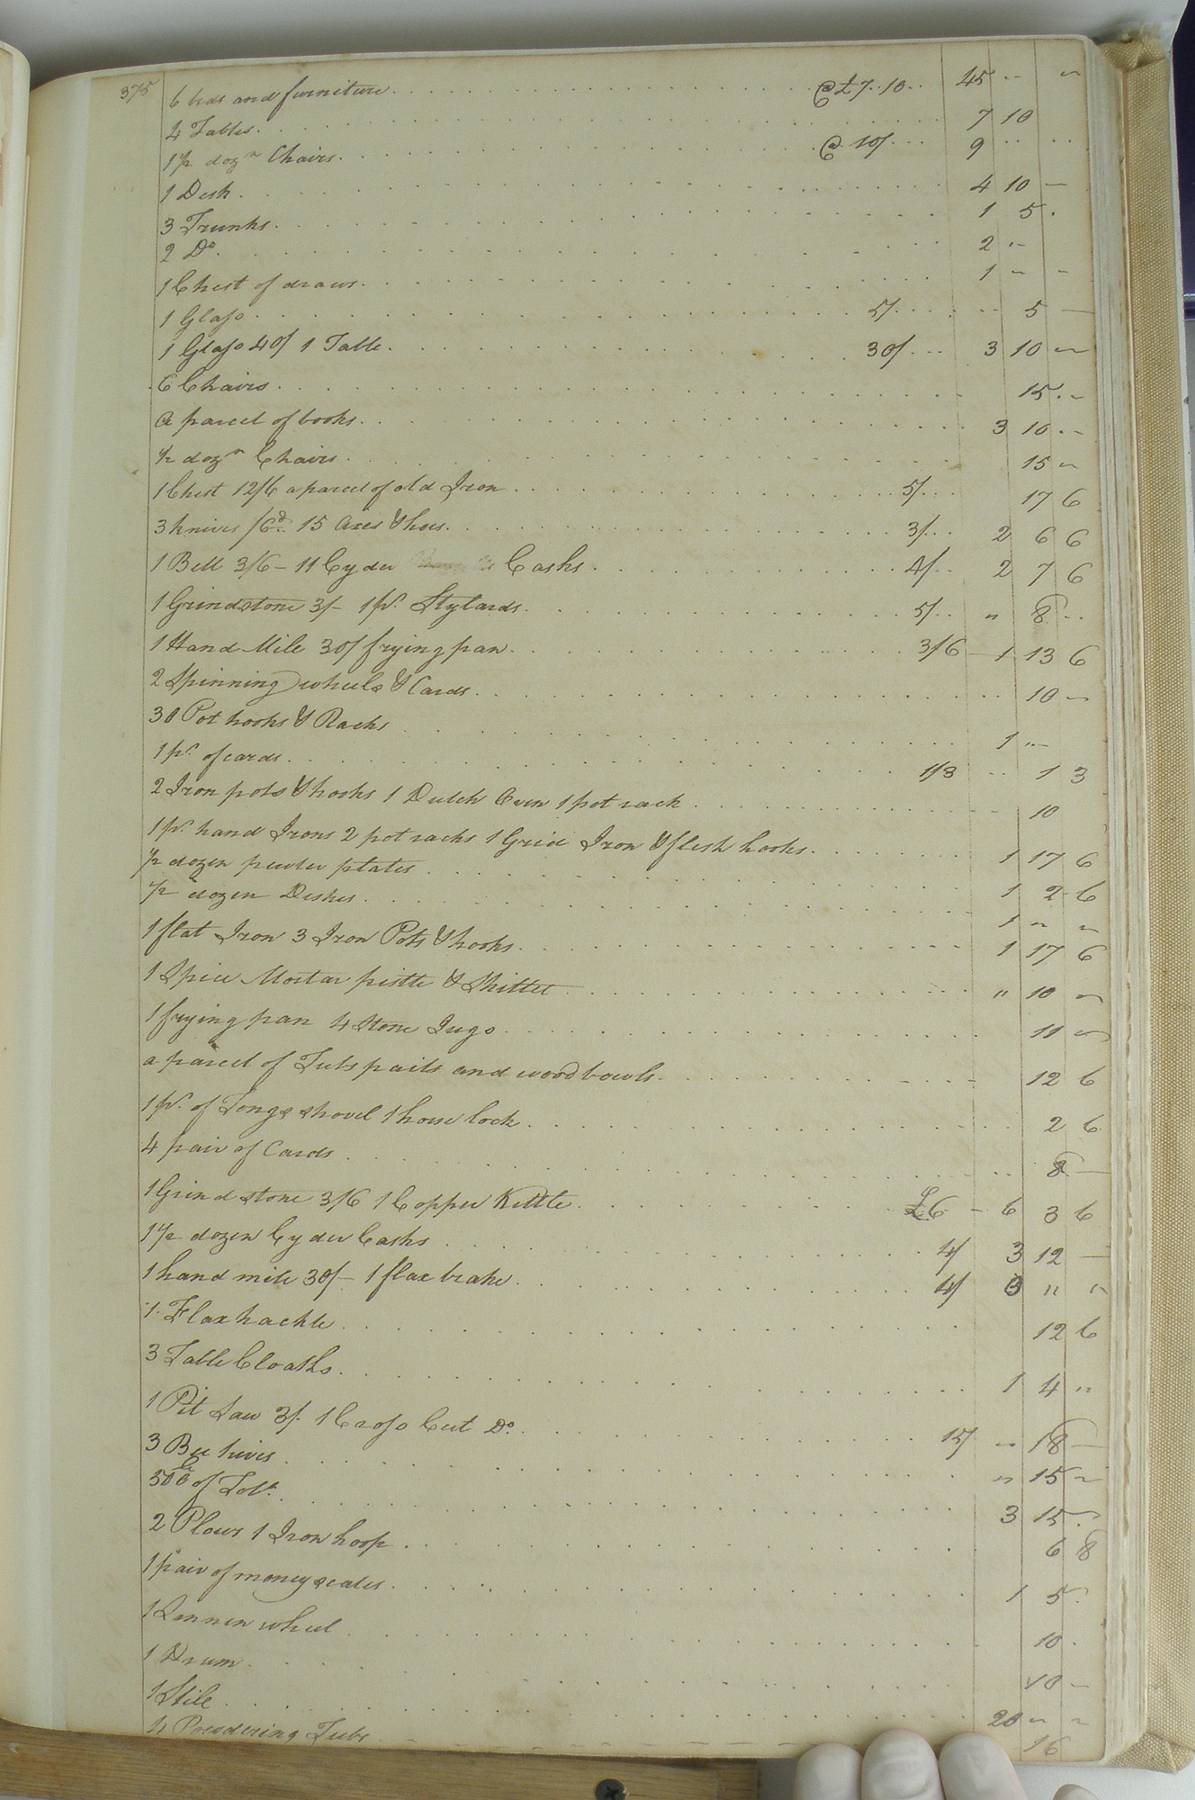 375
6 beds and furniture . . . @ £7..10.. 45 " "
4 Tables . . . 7 10
1½ dozn Chairs . . . @ 10/ . . . 9 .. ..
1 Desk . . . 4 10 —
3 Trunks . . . 1 5 .
2 Do . . . 2 "
1 Chest of draws . . . 1 " "
1 Glass . . . 5/ . . . 5 —
1 Glass 40/ 1 Table . . . 30/ . . . 3 10 "
6 Chairs . . . 15 . "
a parcel of books . . . 3 10 . "
½ dozn Chairs . . . 15 "
1 Chest 12/6 a parcel of old Iron . . . 5/ . . . 17 6
3 knives /6d 15 Axes & hoes . . . 3/ . . . 2 6 6
1 Bell 3/6 – 11 Cyder Casks . . . 4/ . . . 2 7 6
1 Grindstone 3/– 1 pr. Stylards . . . 5/ . . . " 8 ..
1 Hand Mile 30/ frying pan . . . 3/6 — 1 13 6
2 Spinning wheels & Cards . . . 10 "
30 Pot hooks & Racks . . . 1 "
1 pr. of cards . . . 1/3 .. 1 3
2 Iron pots & hooks 1 Dutch Oven 1 pot rack . . . 10
1 pr. hand Irons 2 pot racks 1 Grid Iron & flesh hooks . . . 1 17 6
½ dozen pewter plates . . . 1 2 6
½ dozen Dishes . . . 1 " "
1 flat Iron 3 Iron Pots & hooks . . . 1 17 6
1 Spice Mortar pistle & Skillet . . . " 10 "
1 frying pan 4 Stone Jugs . . . 11 "
a parcel of Tubs pails and wood bowls . . . 12 6
1 pr. of Tongs shovel 1 horse lock . . . 2 6
4 pair of Cards . . . 8 —
1 Grind stone 3/6 1 Copper Kettle . . . £6 – 6 3 6
1½ dozen Cyder Casks . . . 4/ 3 12 —
1 hand mile 30/– 1 flax brake . . . 4/ " "
1 Flax hackle . . . 12 6
3 Table Cloaths . . . 1 4 "
1 Pit Saw 3/. 1 Cross Cut Do. . . . 15/ " 18 —
3 Bee hives . . . " 15 "
500 of Tob. . . . 3 15 .
2 Plows 1 Iron hoop . . . 6 8
1 pair of money scales . . . 1 5 .
1 Lennen wheel . . . 10 .
1 Drum . . . 10 –
1 Stile . . . 20 " "
4 Powdering Tubs . . . 16